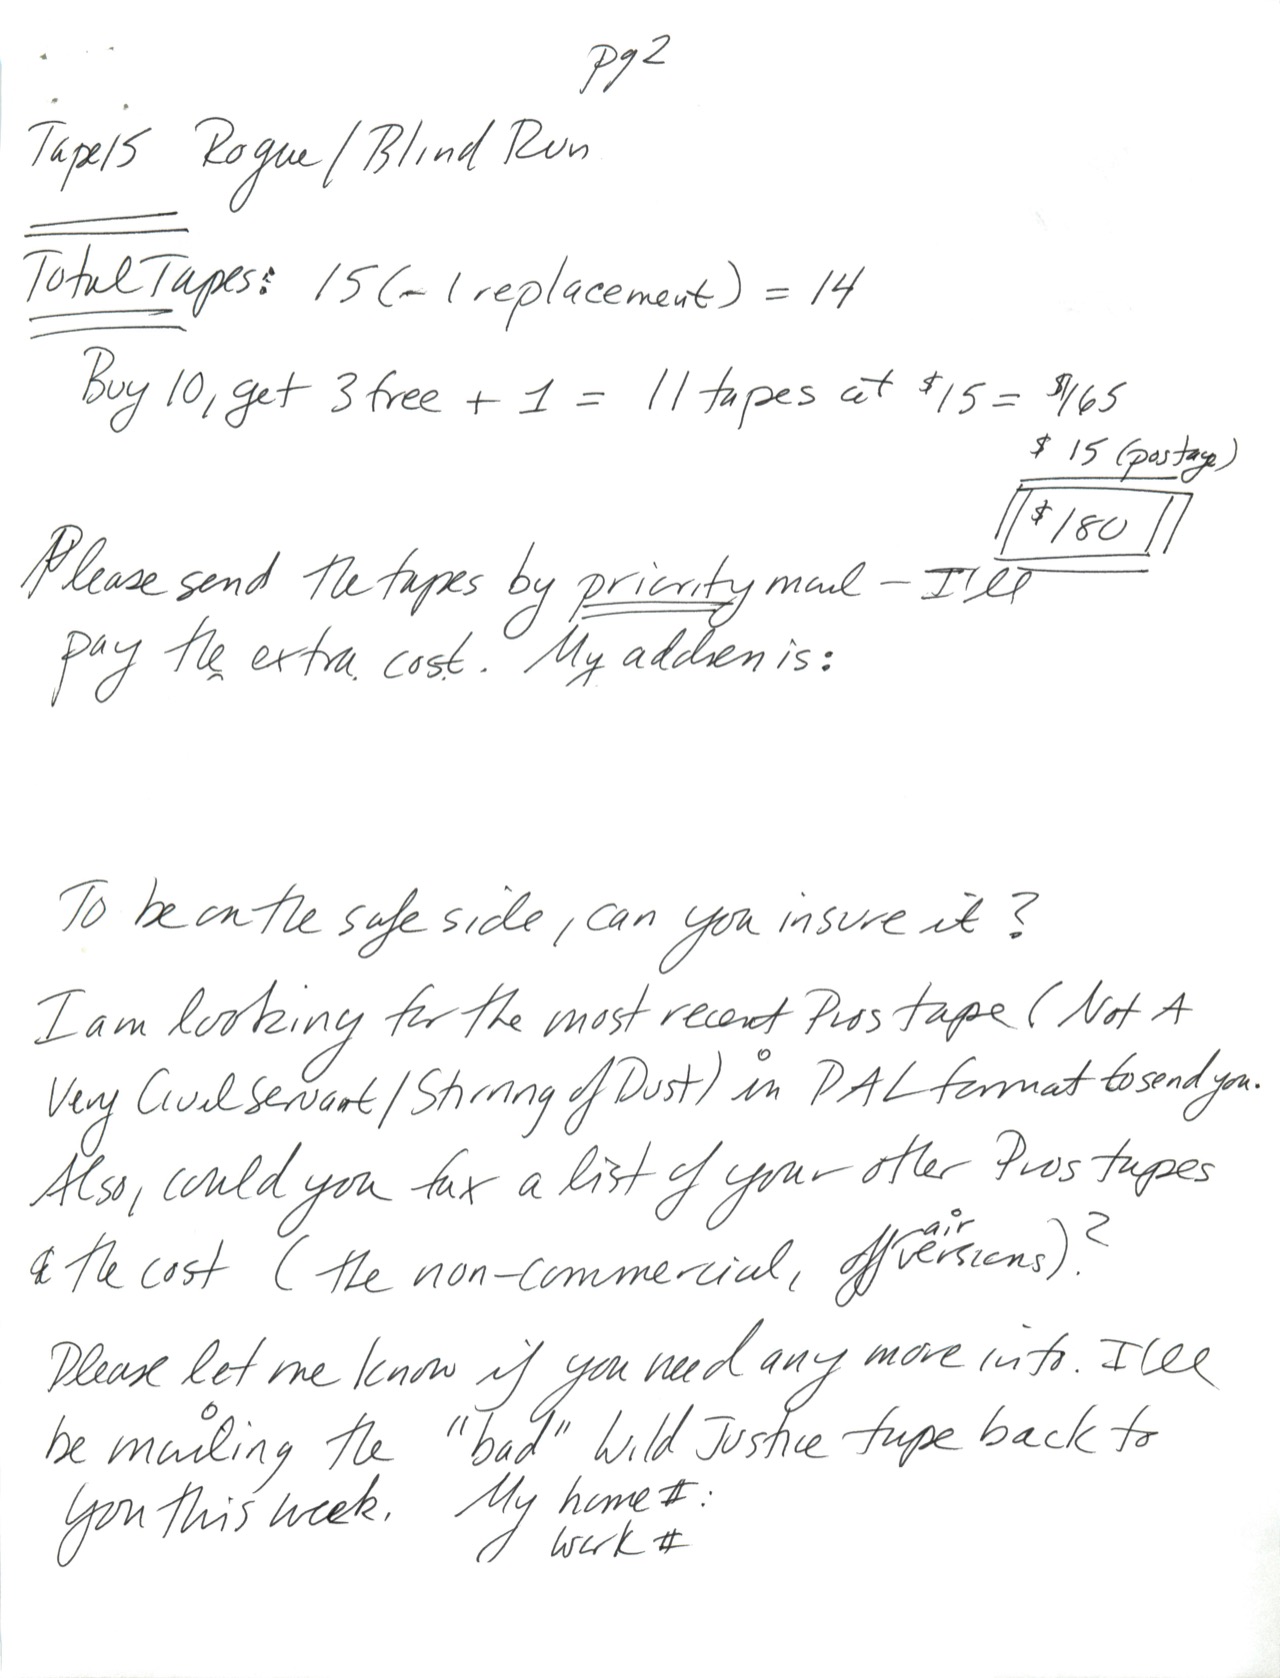 pg 2
Tape 15 Rogue / Blind Run
Total Tapes: 15 (- 1 replacement) = 14
Buy 10, get 3 free + 1 = 11 tapes at $15 = $165
$ 15 (postage)
$180
Please send the tapes by priority mail - I'll
pay the extra cost. My address is:
To be on the safe side, can you insure it?
I am looking for the most recent Pros tape (Not A
Very Civil Servant / Stirring of Dust) in PAL format to send you.
Also, could you fax a list of your other Pros tapes
& the cost (the non-commercial, off air versions)?
Please let me know if you need any more info. I'll
be mailing the "bad" Wild Justice tape back to
you this week. My home #:
work #